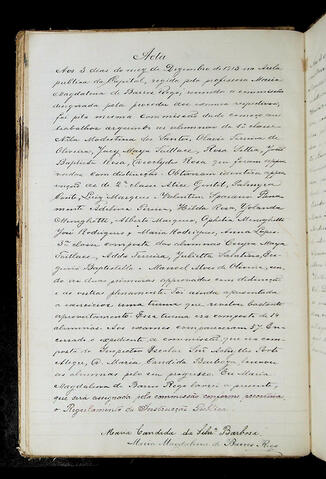 Acta
Aos 3 dias do mez de Dezembro de 1913 na Aula
publica da Capital, regida pela professora Maria
Magdalena de Barros Rego, reunida a commissão
designada para proceder aos exames respectivos,
foi pela mesma Commissão dado começo aos
trabalhos arguindo os alumnos da 1ª classe.
Nilla Modestina dos Santos, Olavo Pereira de
Oliveira, Jacy Maya Faillace, Rosa Sitta, João
Baptista Rosa, Rosa que foram appro
vados com distincção. Obtiveram identica appro
vação os da 2ª classe Alice Gentil, Palmyra
Conte, Luiz Marques, Valentim
Adelina Hilda Rosa, Yolanda
Menghetti, Alberto Marques, Ophelia Menghetti
José Rodrigues, Maria Rodrigues, Anna Lopes.
3ª classe composta das alumnas Cecy Maya
Faillace, Adda Ferreira, Julietta
Baptistella, Manoel Alves de Oliveira, sen
do as duas primeiras approvadas com distincção
e as outras plenamente. Foi ainda apresentada
a exercicios uma turma que revelou bastante
aproveitamento. Essa turma era composta de 14
alumnos. Aos exames compareceram 37. En
cerrado o expediente a commissão, que era com
posta do Inspector Escolar Snr. Achylles Porto
Alegre, D. Maria Candida Barbosa
os alumnos pelo seu progresso. Eu Maria
Magdalena de Barros Rego lavrei a presente,
que será assignada pela commissão conforme
o Regulamento da Instrucção Publica.
Maria Candida da Silva Barbosa
Maria Magdalena de Barros Rego